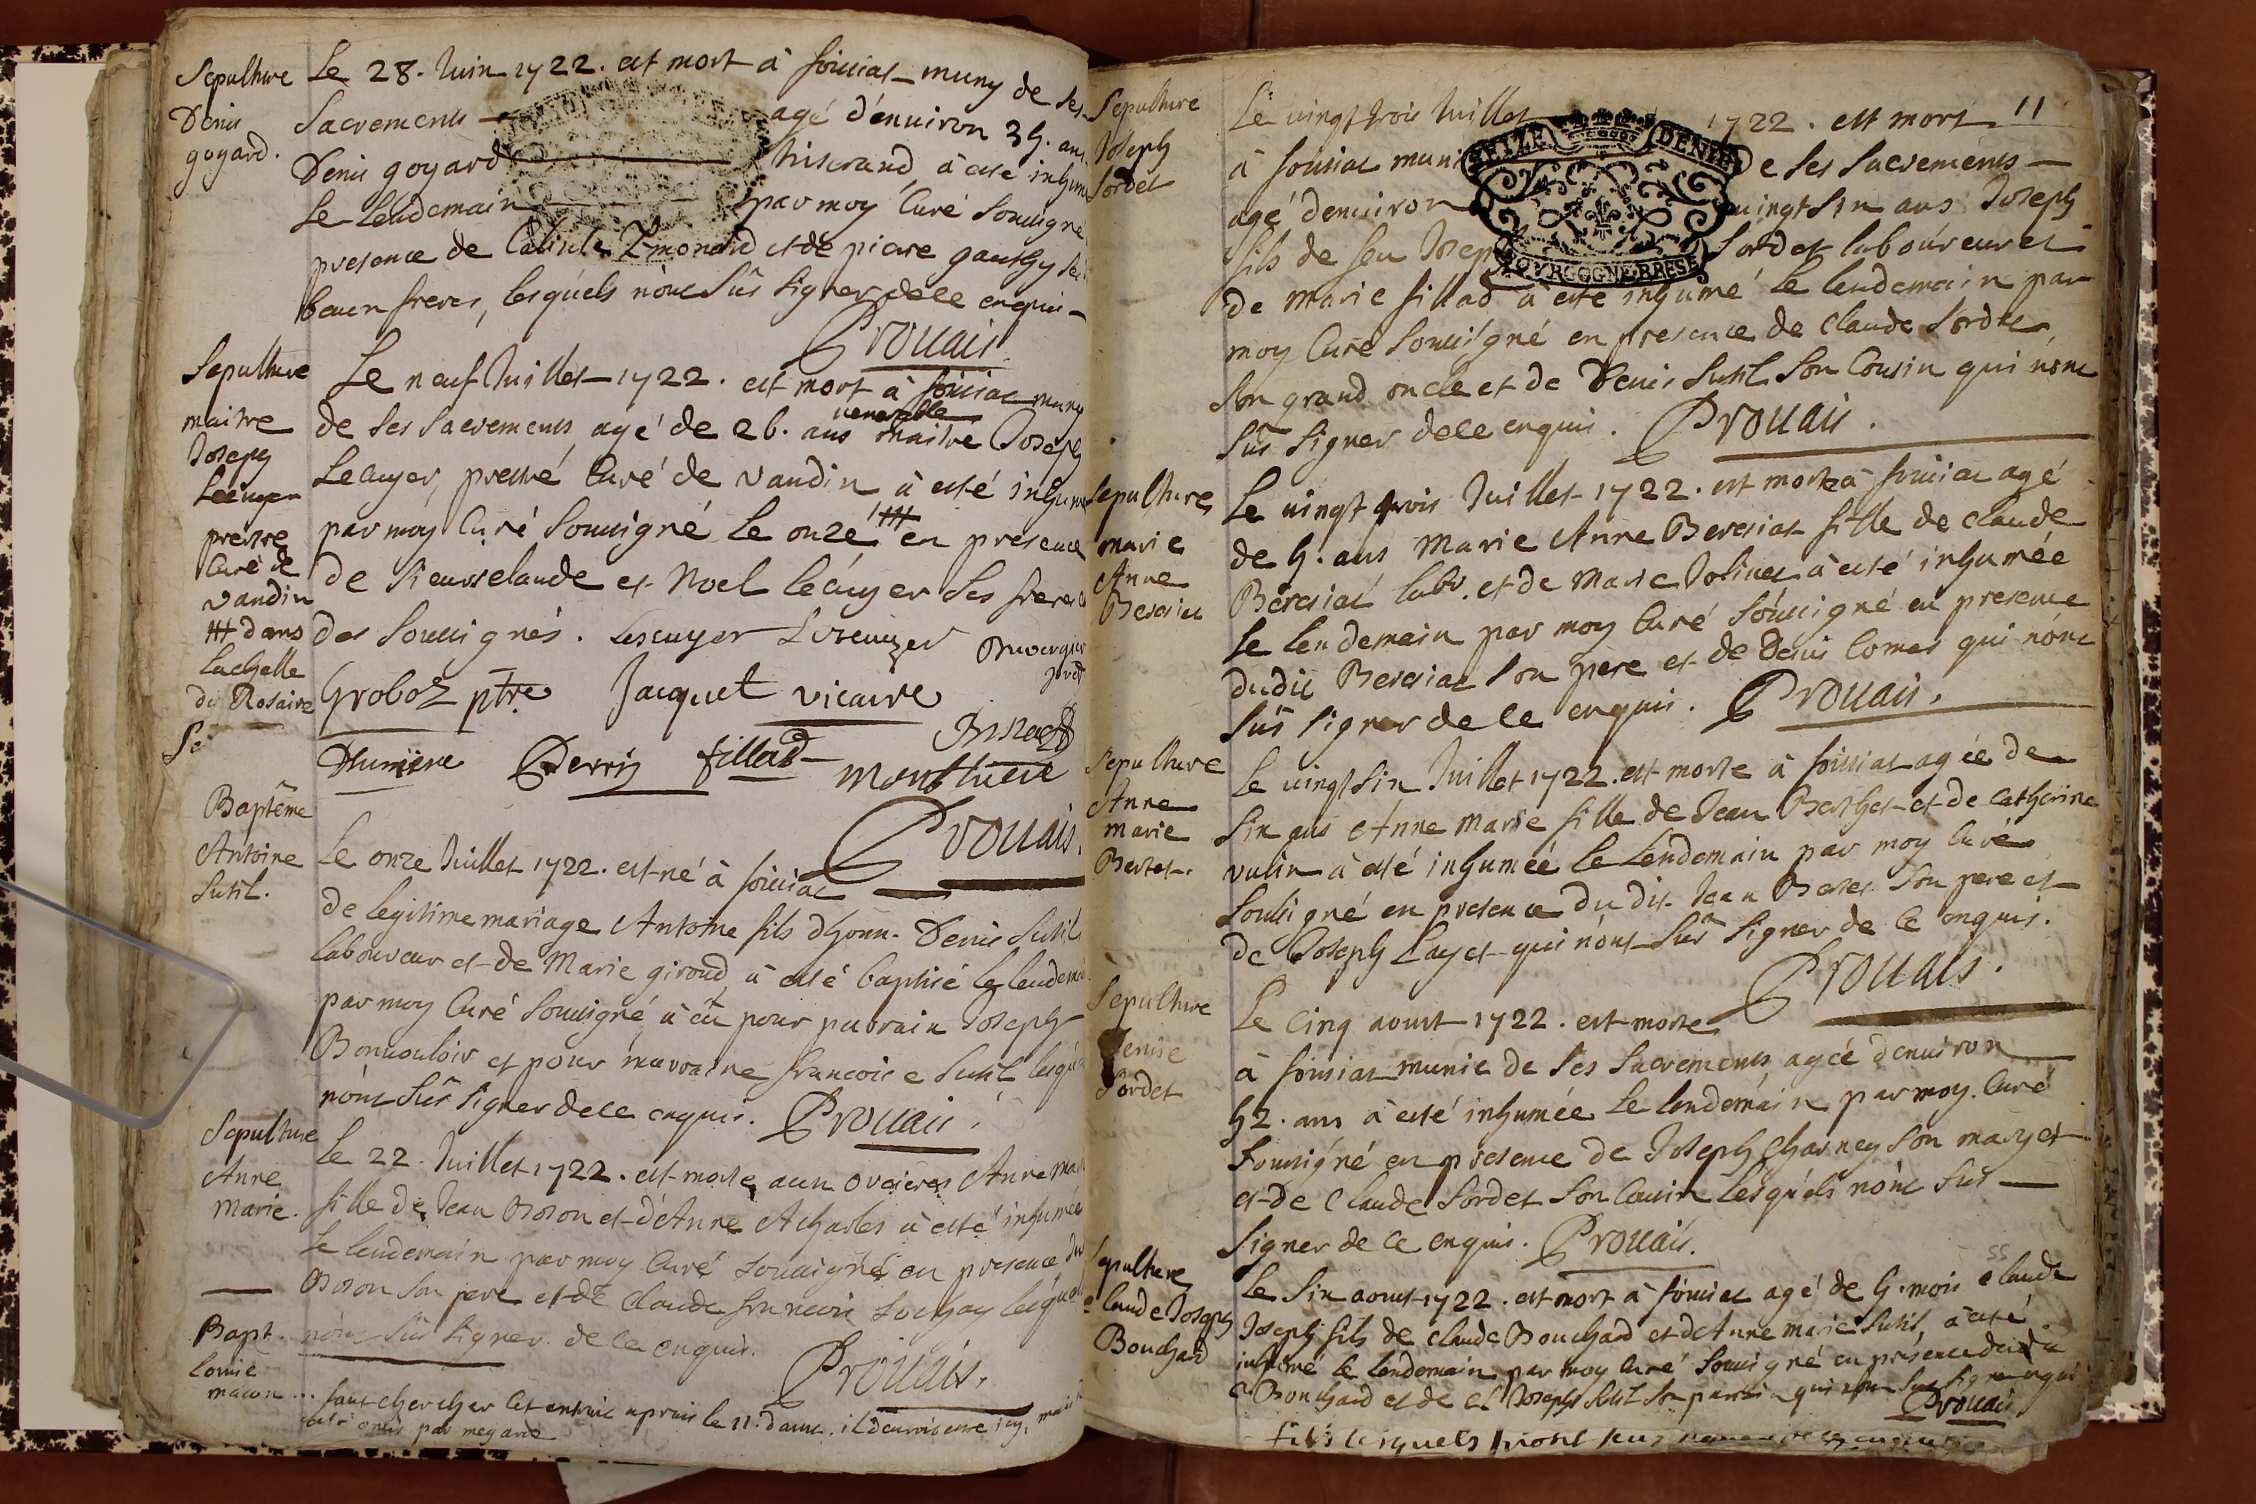 Sepulture
Denis
goyard.
Le 28. Juin 1722. est mort à foissiat muny de ses
Sacrements agé d'enuiron 35. ans
Denis goyard tisserand, à esté inhumé
Le Lendemain par moy Curé Soussigné
presence de et de pierre gauthy ses
beaux freres, lesquels n'ont Sû signer de ce enquis
Prouais
Sepulture
maitre
Joseph
Lecuyer
prestre
Curé de
vandin
dans
la chelle
du Rosaire
Se
Le neuf Juillet 1722. est mort à foissiat muny
venerable
de ses sacrements agé de 26. ans maitre Joseph
Lecuyer, prestre Curé de vandin à esté inhumé
par moy Curé Soussigné Le onze en presence
de Sieurs claude et Noel lecuyer ses freres
des soussignés. Lescuyer Lescuyer
Groboz ptre Jacquet vicaire
Perrin fillod
Montluere
Prouais.
Baptême
Antoine
Sutil.
Le onze Juillet 1722. est né à foissiat
de legitime mariage Antoine fils d'honn. Denis Sutil
Laboureur et de Marie giroud, à esté baptisé le lendemain
par moy Curé Soussigné à eû pour parrain Joseph
Bonvouloir et pour marraine francoise Sutil lesquels
n'ont Sû signer de ce enquis. Prouais.
Sepulture
Anne
Marie.
Le 22. Juillet 1722. est morte aux Anne Marie
fille de Jean Boson et d'Anne Acharles à esté inhumée
Le lendemain par moy Curé soussigné en presence du
Boson son pere et de Claude francois lesquels
n'ont Sû signer de ce enquis.
Prouais.
Bapt.
Louise
macon
... faut chercher cet extrait apres le 11. d'aout. il devroit estre icy, mais
omis par megarde
11
Sepulture
Joseph
Sordet
Le vingt trois Juillet 1722. est mort
SEIZE DENIE
BOVRGOGNE BRESSE
à foissiat muni de ses sacrements
agé d'enuiron vingt six ans Joseph
fils de feu Joseph Sordet laboureur et
de Marie fillod à esté inhumé Le lendemain par
moy Curé Soussigné en presence de Claude Sordet
son grand oncle et de Denis Sutil son Cousin qui n'ont
Sû signer de ce enquis. Prouais.
Sepulture
Marie
Anne
Beresiat
Le vingt trois Juillet 1722. est morte à foissiat agé
de 5. ans Marie Anne Beresiat fille de claude
Beresiat labr. et de Marie Jolivet à esté inhumée
Le lendemain par moy Curé Soussigné en presence
dudit Beresiat son pere et de Denis Comas qui n'ont
Sû signer de ce enquis. Prouais.
Sepulture
Anne
Marie
Bertet.
Le vingt six Juillet 1722. est morte à foissiat agée de
six ans Anne Marie fille de Jean Berthet et de catherine
vulin à esté inhumée Le lendemain par moy Curé
Soussigné en presence dudit Jean Bertet son pere et
de Joseph Layet qui n'ont Sû signer de ce enquis.
Prouais.
Sepulture
Denise
Sordet
Le cinq aoust 1722. est morte
à foissiat munie de ses sacrements agée d'enuiron
52. ans à esté inhumée Le lendemain par moy Curé
Soussigné en presence de Joseph Charney son mary et
et de Claude Sordet son Cousin lesquels n'ont Sû
signer de ce enquis. Prouais.
55
Sepulture
claude Joseph
Bouchard
Le six aoust 1722. est mort à foissiat agé de 5. mois claude
Joseph fils de claude Bouchard et d'Anne marie Sutil, à esté
inhumé le lendemain par moy Curé Soussigné en presence dudit
Cl Bouchard et de Cl Joseph Sutil son parrain qui n'ont Sû signer enquis
Prouais